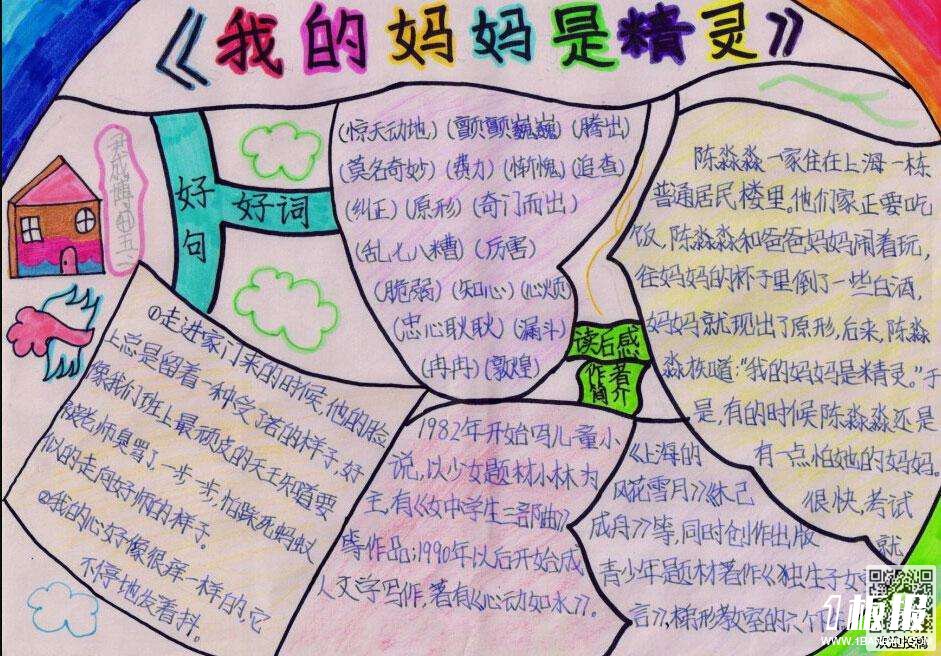 《我的妈妈是精灵》
好句
好词
(惊天动地)(颤颤巍巍)(腾出)
(莫名奇妙)(费力)(惭愧)(追查)
(纠正)(原形)(奇门而出)
(乱七八糟)(厉害)
(脆弱)(知心)(心烦)
(忠心耿耿)(漏斗)
(冉冉)(敦煌)
陈淼淼一家住在上海一栋
普通居民楼里。他们家正要吃
饭,陈淼淼和爸爸妈妈闹着玩,
往妈妈的杯子里倒了一些白酒,
妈妈就现出了原形,后来,陈淼
淼核道:"我的妈妈是精灵。"于
是,有的时候陈淼淼还是
有一点怕她的妈妈。
很快,考试
就
读后感
作者简介
①走进家门来的时候,他的脸
上总是留着一种受了者的样子,好
像我们班上最顽皮的天王知道要
被老师臭骂了,一步一步,怕踩死蚂蚁
似的走向好师的样子。
②我的心好像很痒一样的,它
不停地发着抖。
1982年开始写儿童小
说,以少女题材小林为
主,有《女中学生三部曲》
等作品;1990年以后开始成
人文学写作,著有《心动如水》。
《上海的
风花雪月》《木已
成舟》等,同时创作出版
青少年题材著作《独生子女
言》,梯形教室的六个下
1板报
WWW.1BANBAO.COM
欢迎投稿